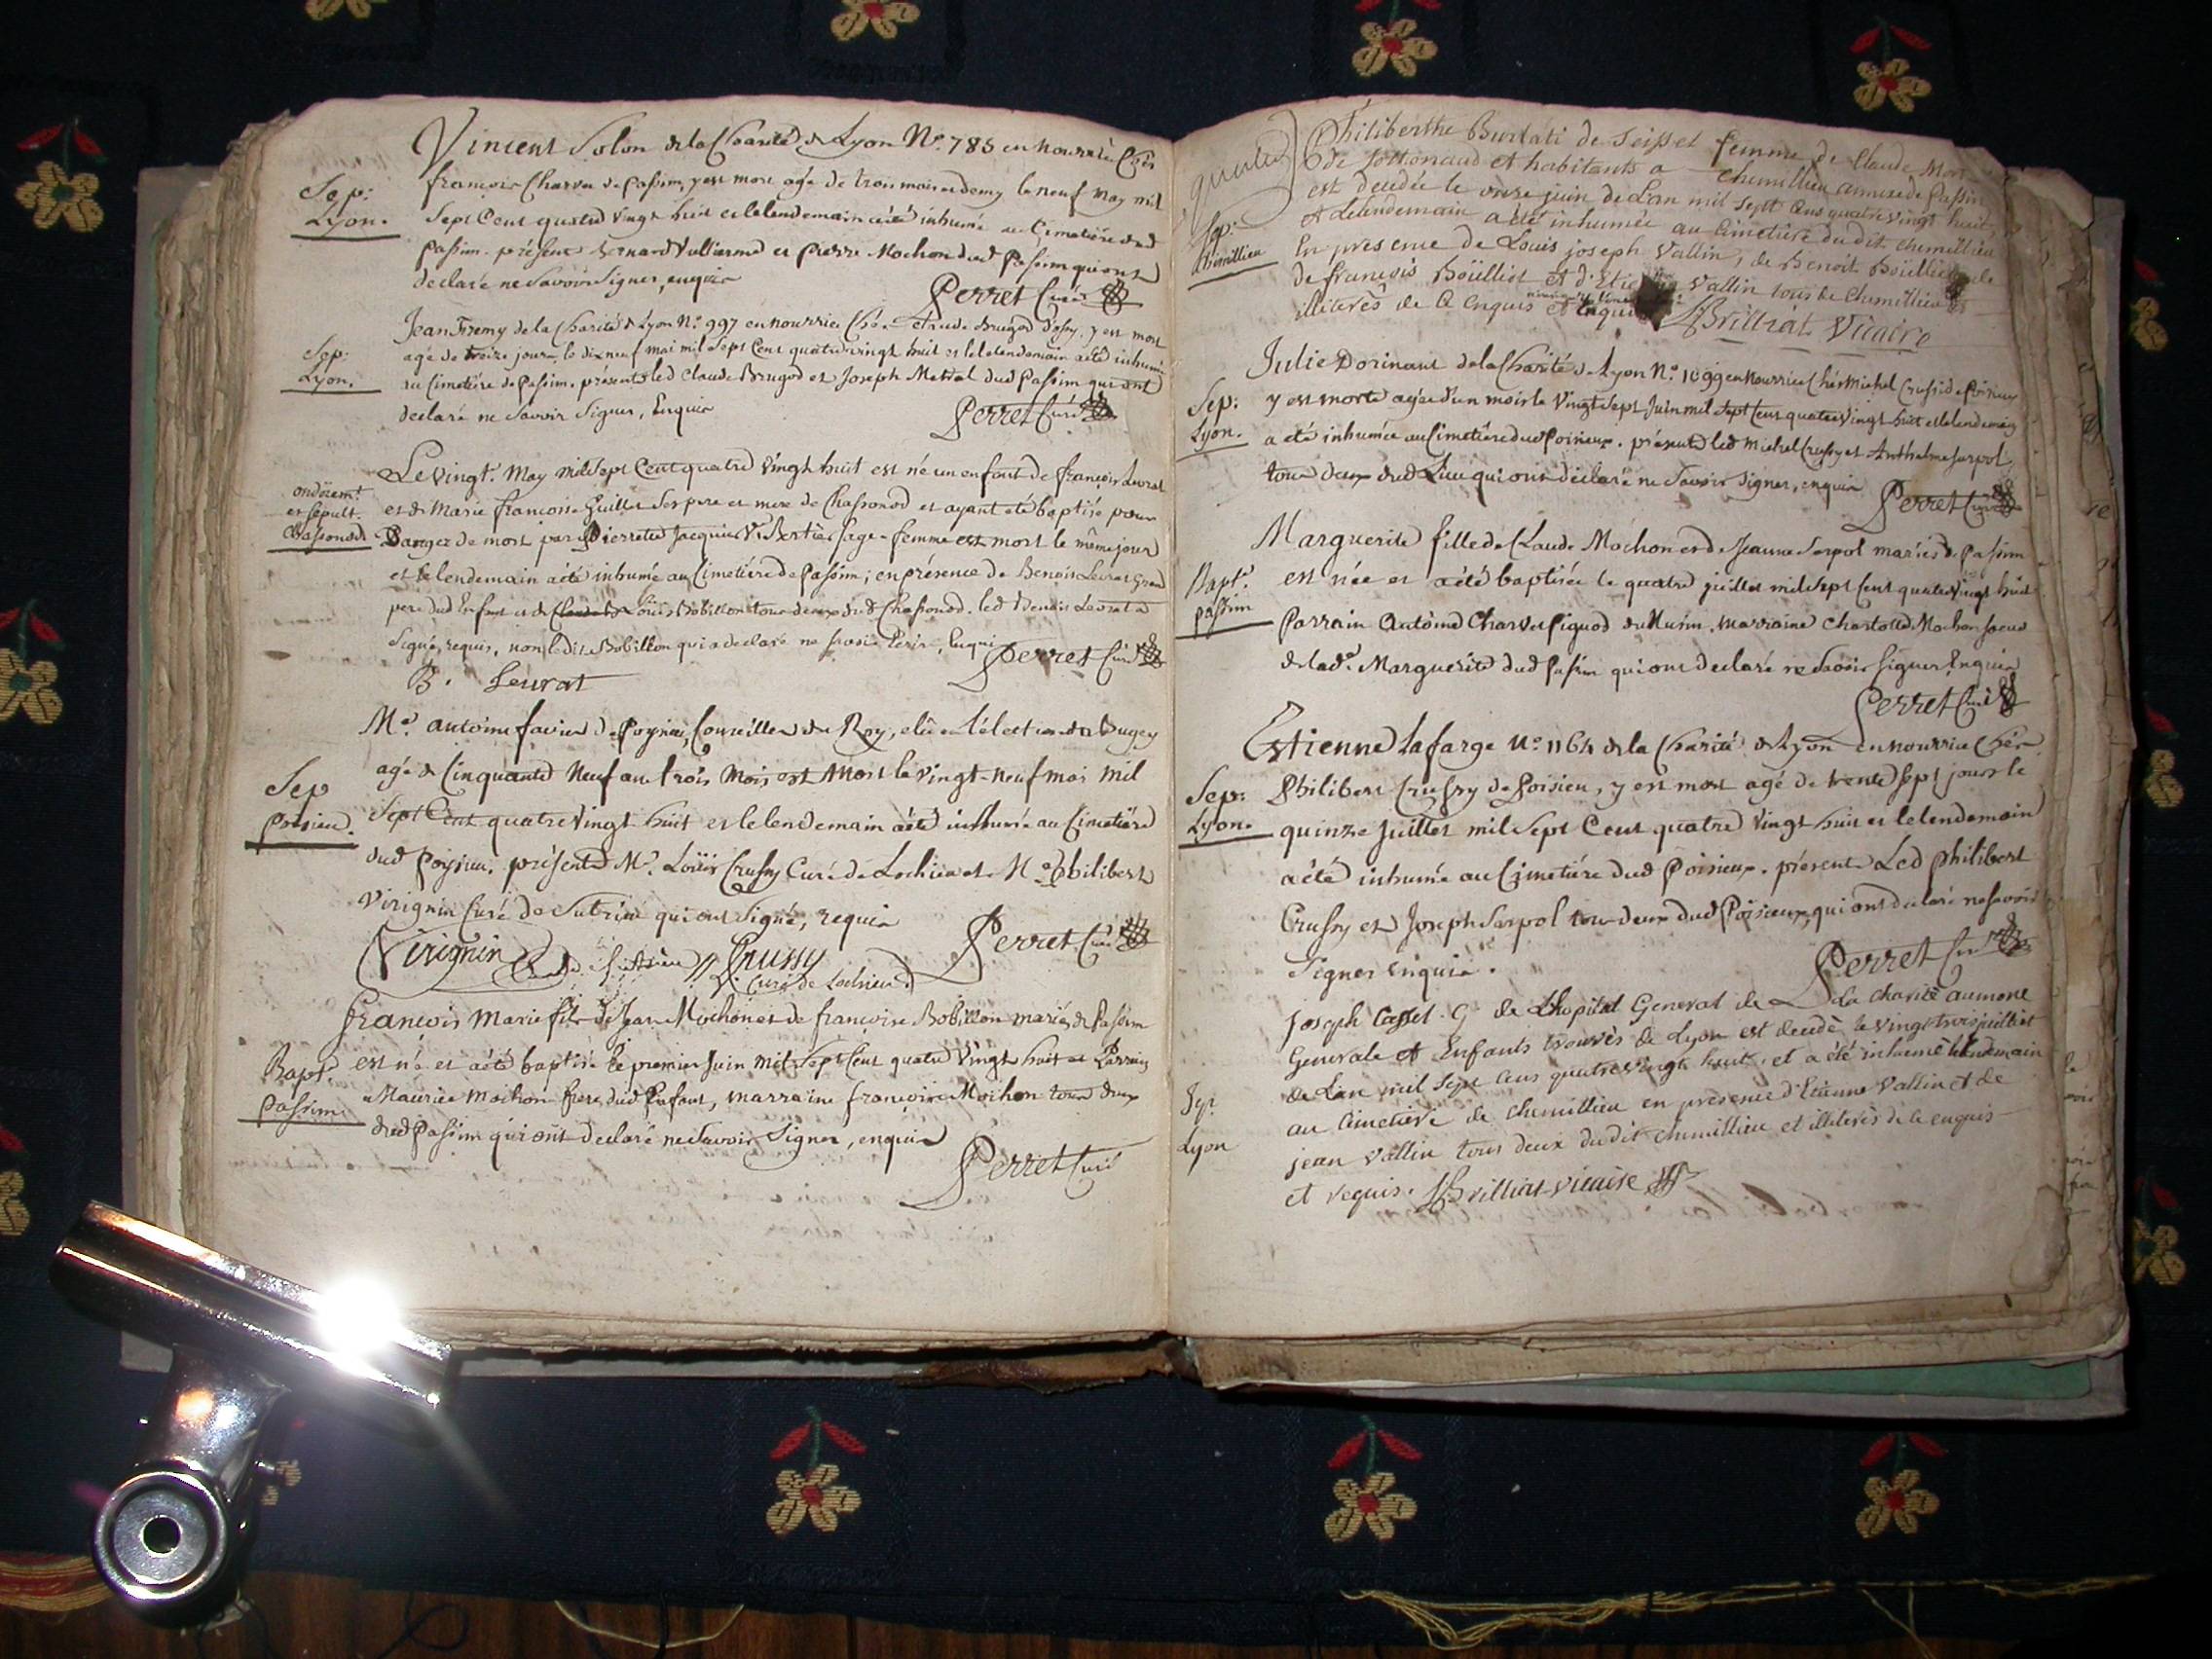 Vincent Solon de la Charité de Lyon N.º 785 en nourrice Chés
françois Charvet de Passim, y est mort agé de trois mois et demy le neuf May mil
Sep:
Lyon.
Sept Cent quatre vingt huit et le lendemain a été inhumé au Cimetiére dud
Passim. présent Bernard Vulliermé et pierre Mochon dud Passim qui ont
declaré ne Savoir Signer, enquis
Perret Curé
Jean Fremy de la Charité de Lyon N.º 997 en nourrice Brugod d'ossy, y est mort
Sep:
Lyon.
agé de treize jours, le dix neuf mai mil Sept Cent quatre vingt huit et le lendemain a été inhumé
au Cimetiére de Passim. présent led Claude Brugod et Joseph Metral dud Passim qui ont
declaré ne Savoir Signer, Enquis
Perret Curé
Le vingt. May mil Sept Cent quatre vingt huit est né un enfant de françois Levrat
ondoiemt
et sepult.
Chassonod
et de Marie francoise Guillet Ses pere et mere de Chassonod et ayant été baptisé pour
Danger de mort par Pierrete Jacquier Ve Bertier Sage-femme est mort le même jour
et le lendemain a été inhumé au Cimetiére de Passim; en présence de Benoit Levrat Grand
pere dud Enfant et de Loüis Bobillon tous deux dud Chassonod. led Benoit Levrat a
Signé, requis, non ledit Bobillon qui a declaré ne savoir Ecrire, Enquis
Perret Curé
B. Levrat
Me. antoine favier de Poysieu, Conseiller du Roy, elû en l'élection du Bugey
Sep
Poisieu.
agé de Cinquante Neuf ans trois Mois est Mort le vingt-neuf mai mil
Sept Cent quatre Vingt huit et le lendemain a été inhumé au Cimetiére
dud Poysieu. présent Mr. Loüis Crussy Curé de Lochieu et Me Philibert
Virignin Curé de Sutrieu qui ont Signé, requis
Perret Curé
Virignin Crussy
Curé de Lochieu
françois Marie fils de Jean Mochon et de francoise Bobillon mariés de Passim
Bapt.
Passim.
est né et a été baptisé le premier Juin mil Sept Cent quatre Vingt huit et Parrain
a Maurice Mochon frere dud Enfant, marraine françoise Mochon tous deux
dud Passim qui ont declaré ne Savoir Signer, enquis
Perret Curé
Philiberthe Burlati de Seissel femme de Claude Mort
de Jottonaud et habitants a chemillieu annexe de Passin
est decedée le onze juin de L'an mil sept cens quatre vingt huit
Sep:
chemillieu
et Lelendemain a été inhumée au cimetière dudit chemillieu
En presence de Louis joseph Vallin, de Benoit Boüilliet de
de françois Boüilliet et d'Etienne Vallin tous de Chemillieu
illiterés de Ce Enquis et requis
JBrilliat Vicaire
Julie Dorinaut de la Charité de Lyon N.º 1099 en nourrice Chés Michel Crussy de Poisieux
Sep:
Lyon.
y est morte agée d'un mois le Vingt Sept Juin mil Sept Cent quatre Vingt huit et le lendemain
a été inhumée au Cimetiére dud Poisieux. présent led michel Crussy et Anthelme Serpol
tous deux dud Lieu qui ont declaré ne Savoir Signer, enquis
Perret Curé
Marguerite fille de Claude Mochon et de Jeanne Serpol mariés de Passim
Bapt.
passim
est née et a été baptisée le quatre juillet mil Sept Cent quatre Vingt huit
Parrain Antoine Charvet piquod du Murin. marraine charlotte Mochon soeur
de lade Marguerite dud Passim qui ont declaré ne Savoir Signer Enquis
Perret Curé
Estienne Lafarge N.º 1164 de la Charité de Lyon en nourrice Chés
Sep:
Lyon.
Philibert Crussy de Poisieu, y est mort agé de trente Sept jours le
quinze Juillet mil Sept Cent quatre Vingt huit et le lendemain
a été inhumé au Cimetiére dud Poisieux. présent Led philibert
Crussy et Joseph Serpol tous deux dud Poisieux, qui ont declaré ne Savoir
Signer Enquis.
Perret Curé
joseph Casset. G de Lhopital General de La charité aumone
Generale et Enfants trouvés de Lyon est decedé le vingt trois juilliet
Sep.
Lyon
de L'an mil sept cens quatre vingt huit et a été inhumé le lendemain
au Cimetiere de chemillieu en presence d'Etienne Vallin et de
jean Vallin tous deux dudit chemillieu et illiterés de ce enquis
et requis. JBrilliat vicaire